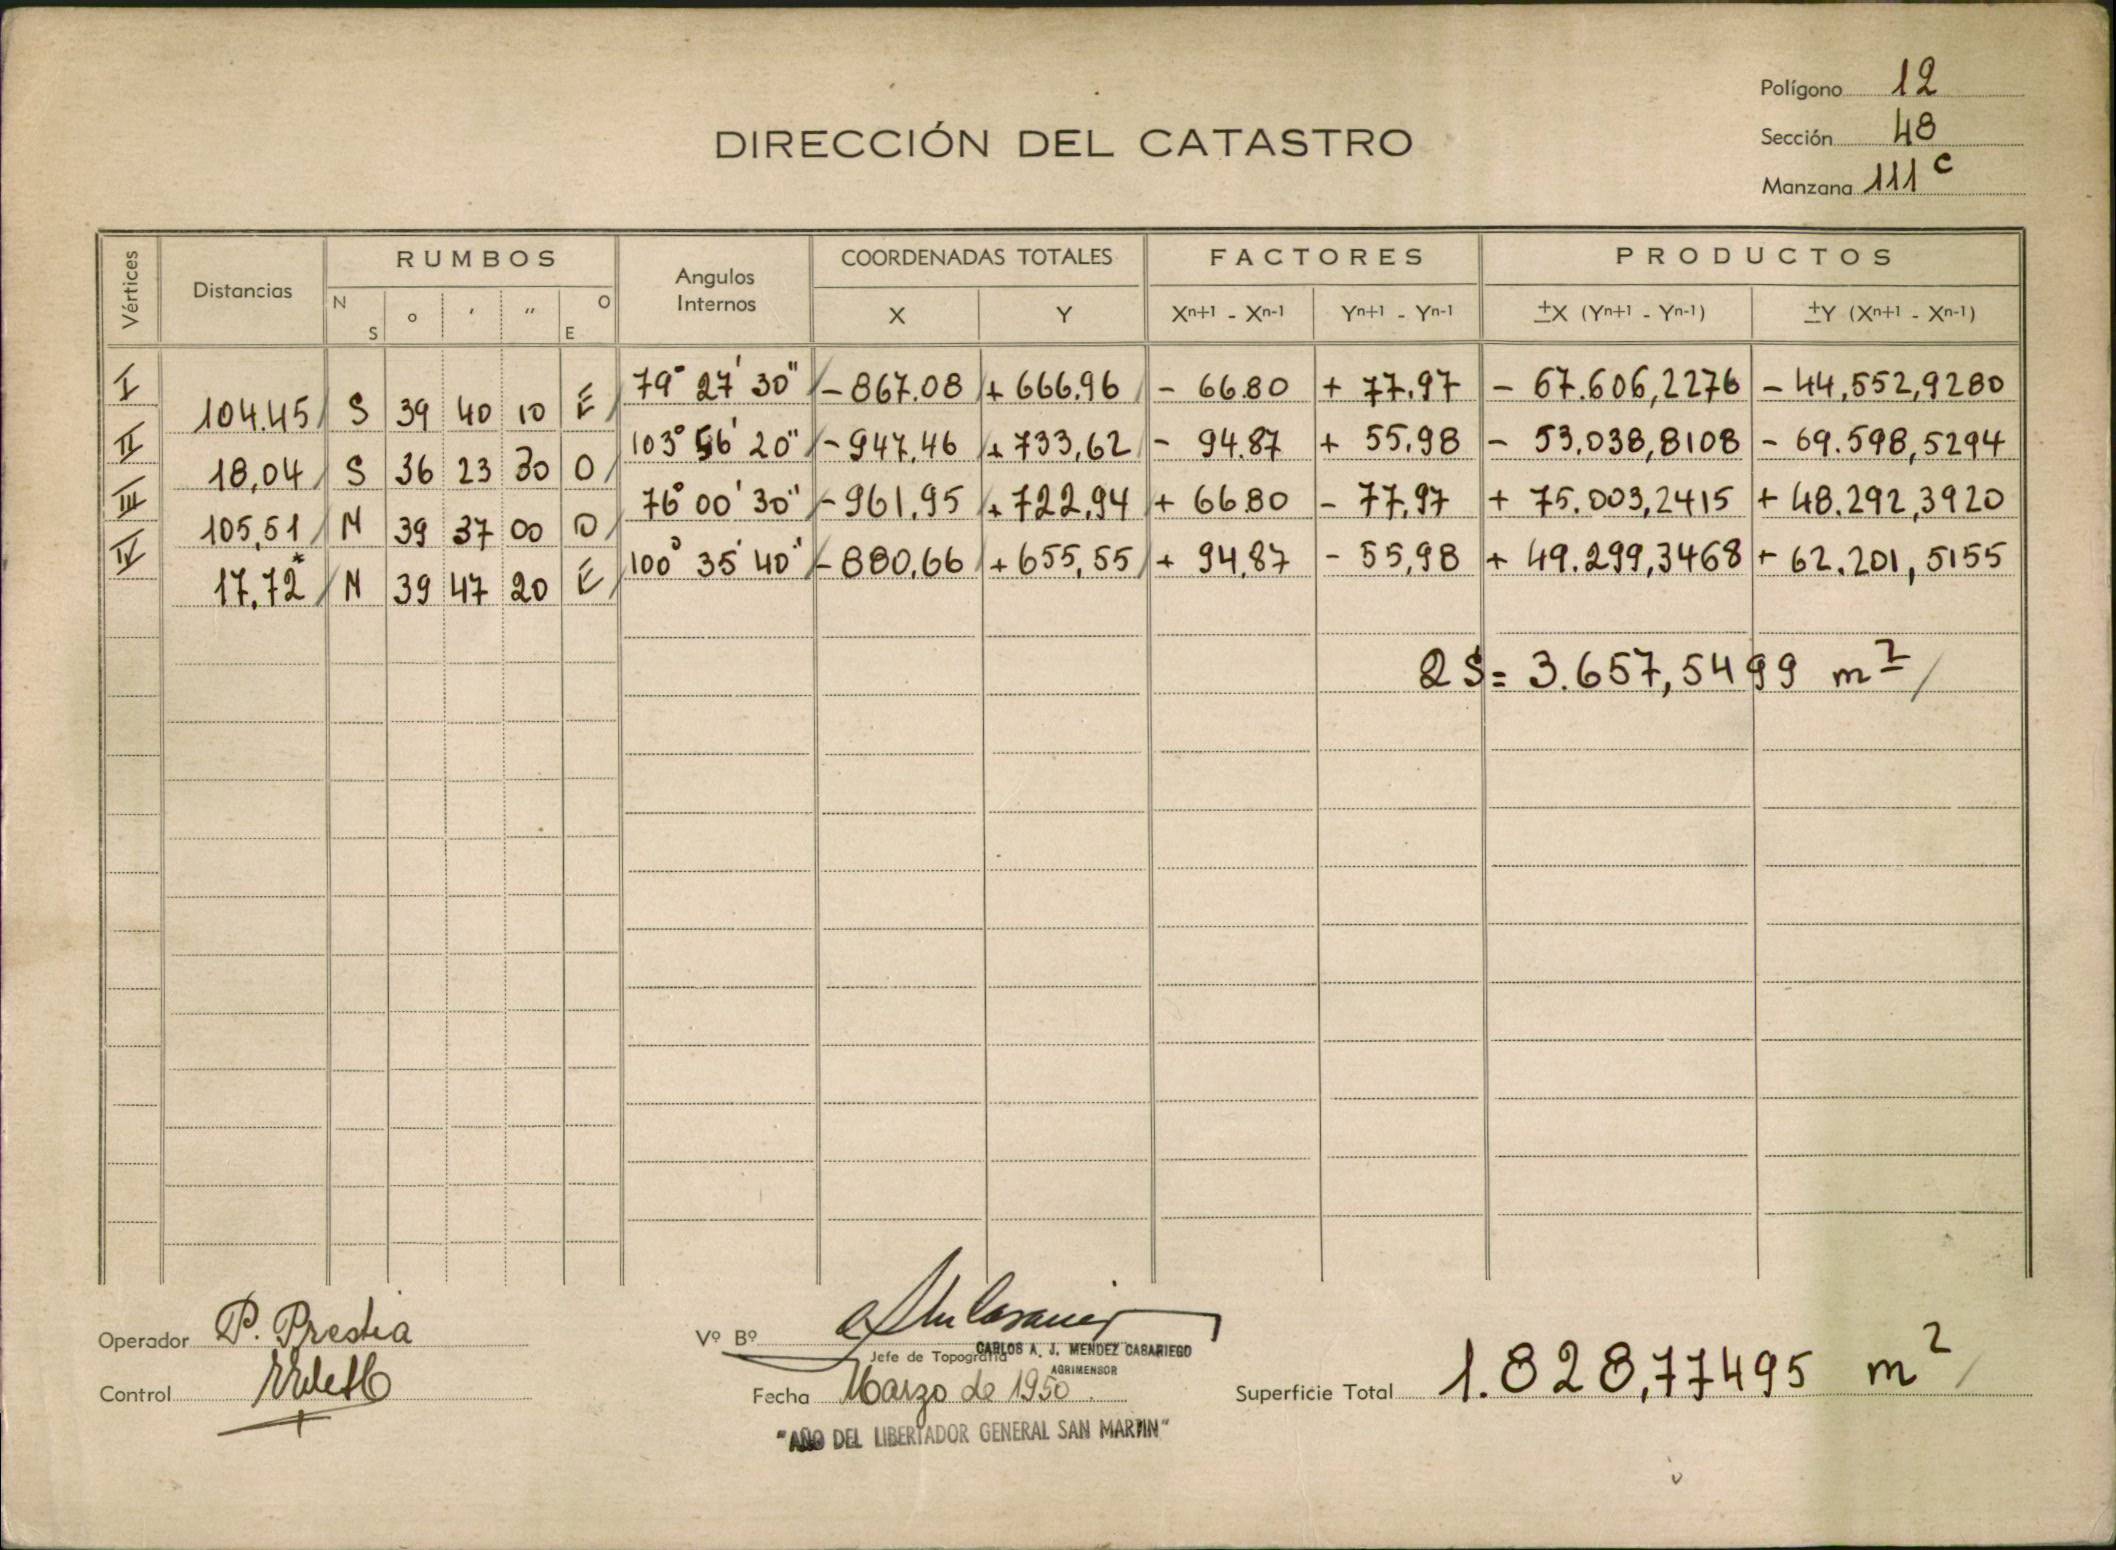 Polígono 12
DIRECCIÓN DEL CATASTRO
Sección 48
Manzana 111 c
Vértices Distancias RUMBOS Angulos Internos COORDENADAS TOTALES FACTORES PRODUCTOS
N S ° ' " O E X Y Xn+1 - Xn-1 Yn+1 - Yn-1 ±X (Yn+1 - Yn-1) ±Y (Xn+1 - Xn-1)
I 79° 27' 30" - 867.08 + 666.96 - 66.80 + 77.97 - 67.606,2276 - 44,552,9280
104.45 S 39 40 10 E
II 103° 56' 20" - 947.46 + 733,62 - 94.87 + 55.98 - 53.038,8108 - 69.598,5294
18,04 S 36 23 30 O
III 76° 00' 30" - 961,95 + 722,94 + 66.80 - 77,97 + 75.003,2415 + 48.292,3920
105,51 N 39 37 00 O
IV 100° 35' 40" - 880,66 + 655,55 + 94,87 - 55,98 + 49.299,3468 + 62.201,5155
17,72* N 39 47 20 E
2S = 3.657,5499 m2
Operador P. Prestia
Vº Bº
Jefe de Topografía CARLOS A. J. MENDEZ CASARIEGO
AGRIMENSOR
Control
Fecha Marzo de 1950.
Superficie Total 1.828,77495 m2
"AÑO DEL LIBERTADOR GENERAL SAN MARTIN"